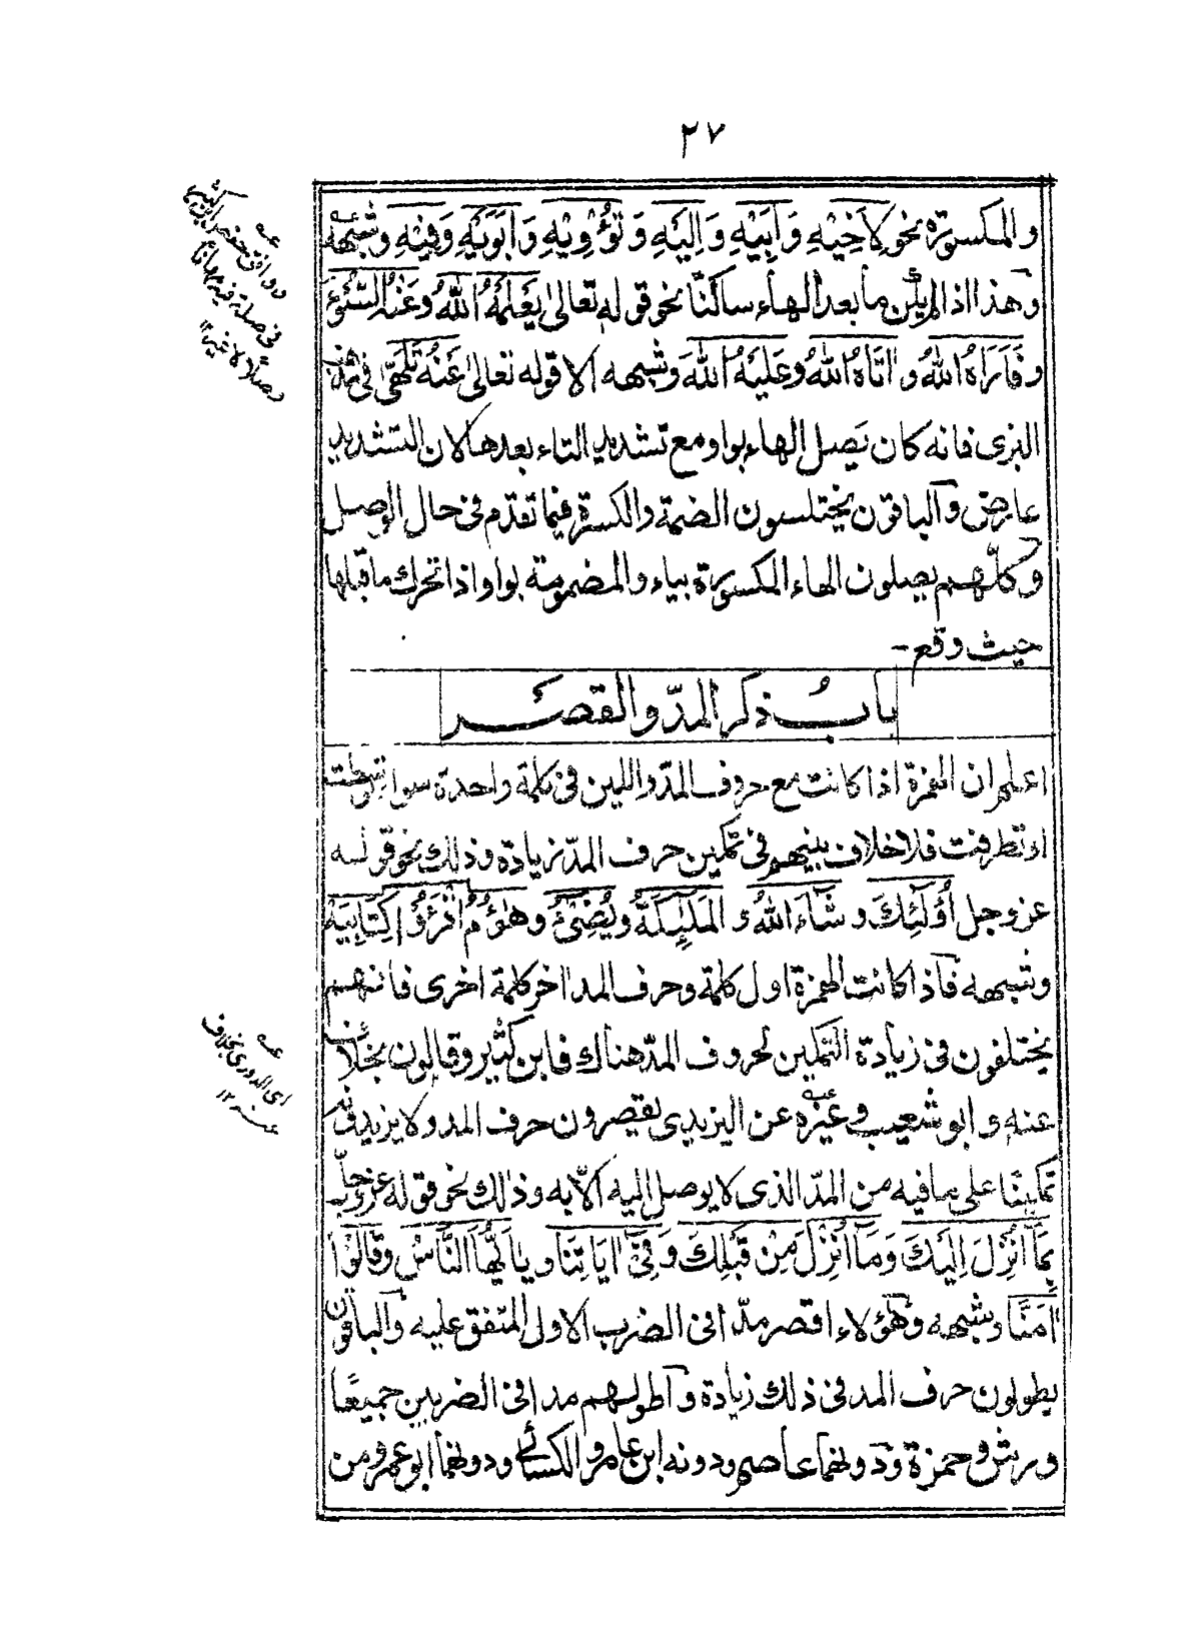 ٢٧
والمكسورة نحو لِاَخِيْهِ وَاَبِيْهِ وَاِلَيْهِ وَتُؤْوِيْهِ وَاَبَوَيْهِ وَفِيْهِ وشبهه
وهذا اذا لم يكن ما بعد الهاء ساكنًا نحو قوله تعالى يَعْلَمْهُ اللهُ وعَنْهُ السُّوْءَ
وفَاَرَاهُ اللهُ و اٰتَاهُ اللهُ وعَلَيْهُ اللهَ وشبهه الا قوله تعالى عَنْهُ تَلَهّٰى فى مذهب
البزى فانه كان يَصِل الهاء بواو مع تشديد التاء بعدها لان التشديد
عارض والباقون يختلسون الضمة والكسرة فيما تقدم فى حال الوصل
وكلّهم يصلون الهاء المكسورة بياء والمضمومة بواو اذا تحرك ما قبلها
حيث وقع -
بابُ ذكر المدّ والقصر
اعلم ان الهمزة اذا كانت مع حروف المدّ واللين فى كلمة واحدة سواء توسطت
او تطرفت فلا خلاف بينهم فى تمكين حرف المدّ زيادة وذلك نحو قوله
عز وجل اُولٰٓئِكَ و شَآءَ اللهُ و المَلٰٓئِكَةُ ويُضِىْٓءُ وهَآؤُمُ اقْرَءُوْا كِتَابِيَهْ
وشبهه فاذا كانت الهمزة اول كلمة وحرف المد اٰخر كلمة اخرى فانهم
يختلفون فى زيادة التمكين لحروف المدّ هناك فابن كثير وقالون بخلاف
عنه وابو شعيب وغيره عن اليزيدى يقصرون حرف المد ولا يزيدونه
تمكينًا على ما فيه من المدّ الذى لا يوصل اليه الّا به وذلك نحو قوله عز وجل
بِمَآ اُنْزِلَ اِلَيْكَ وَمَآ اُنْزِلَ مِنْ قَبْلِكَ وَفِىْٓ اٰيَاتِنَا و يٰٓاَيُّهَا النَّاسُ وقَالُوْٓا
اٰمَنَّا وشبهه وهؤلاء اقصر مدّا فى الضرب الاول المتفق عليه والباقون
يطولون حرف المد فى ذلك زيادة واطولهم مدا فى الضربين جميعًا
ورش وحمزة ودونهما عاصم ودونه ابن عامر والكسائى ودونهما ابو عمرو من
عـه
ووافق حفص ابن كثير
فى صلة فيه مهانا
وصلًا لا غير ١٢
عـه
اى الدورى بخلاف
عنـه ١٢